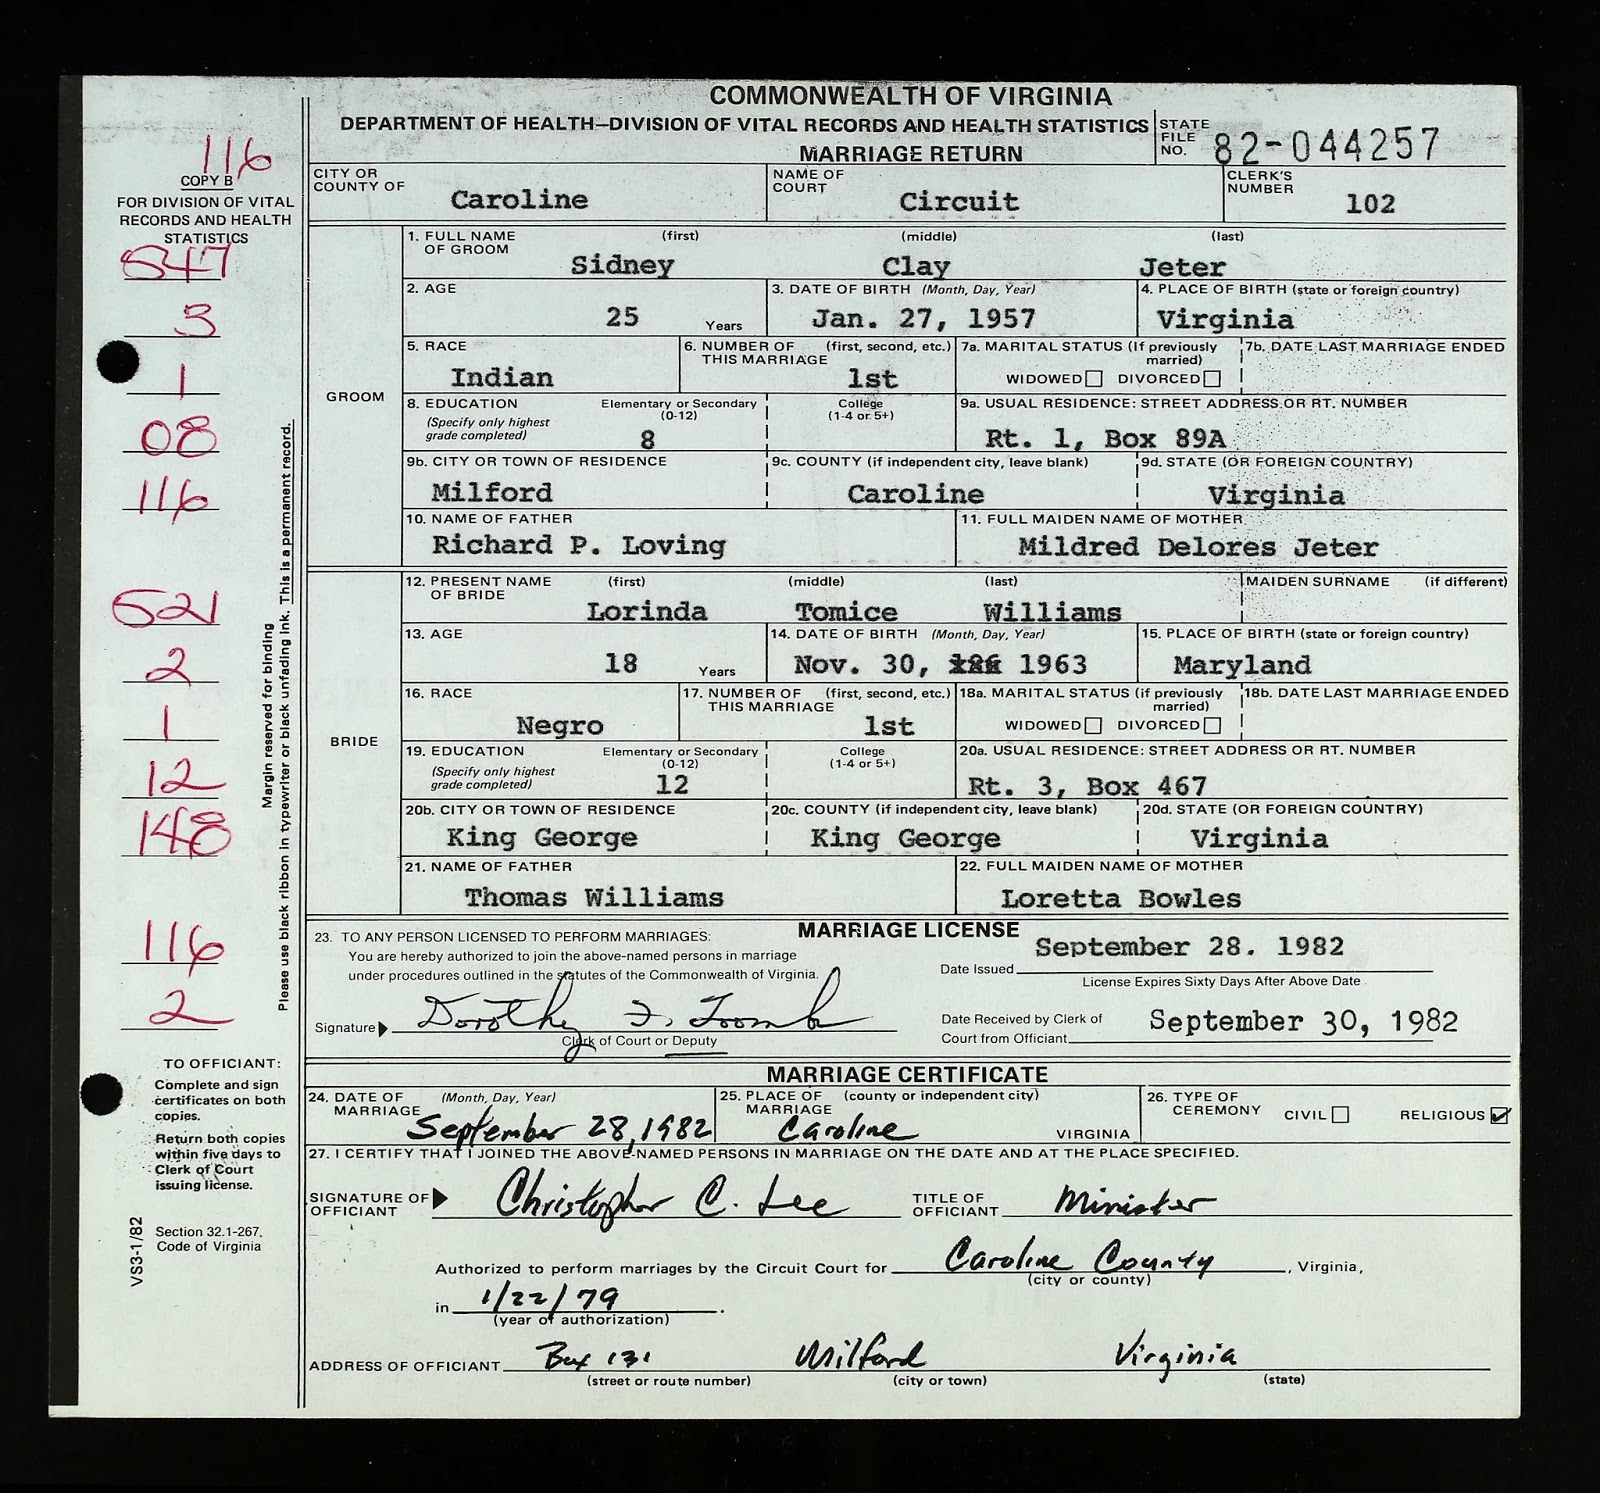 COMMONWEALTH OF VIRGINIA
DEPARTMENT OF HEALTH—DIVISION OF VITAL RECORDS AND HEALTH STATISTICS
MARRIAGE RETURN
STATE FILE NO. 82-044257
116
COPY B
FOR DIVISION OF VITAL
RECORDS AND HEALTH
STATISTICS
547
3
1
08
116
521
2
1
12
148
116
2
Margin reserved for binding
Please use black ribbon in typewriter or black unfading ink. This is a permanent record.
TO OFFICIANT:
Complete and sign
certificates on both
copies.
Return both copies
within five days to
Clerk of Court
issuing license.
Section 32.1-267,
Code of Virginia
VS3-1/82
CITY OR COUNTY OF Caroline
NAME OF COURT Circuit
CLERK'S NUMBER 102
GROOM
1. FULL NAME OF GROOM (first) (middle) (last)
Sidney Clay Jeter
2. AGE 25 Years
3. DATE OF BIRTH (Month, Day, Year) Jan. 27, 1957
4. PLACE OF BIRTH (state or foreign country) Virginia
5. RACE Indian
6. NUMBER OF THIS MARRIAGE (first, second, etc.) 1st
7a. MARITAL STATUS (If previously married) WIDOWED DIVORCED
7b. DATE LAST MARRIAGE ENDED
8. EDUCATION (Specify only highest grade completed) Elementary or Secondary (0-12) 8
College (1-4 or 5+)
9a. USUAL RESIDENCE: STREET ADDRESS OR RT. NUMBER Rt. 1, Box 89A
9b. CITY OR TOWN OF RESIDENCE Milford
9c. COUNTY (if independent city, leave blank) Caroline
9d. STATE (OR FOREIGN COUNTRY) Virginia
10. NAME OF FATHER Richard P. Loving
11. FULL MAIDEN NAME OF MOTHER Mildred Delores Jeter
BRIDE
12. PRESENT NAME OF BRIDE (first) (middle) (last)
Lorinda Tomice Williams
MAIDEN SURNAME (if different)
13. AGE 18 Years
14. DATE OF BIRTH (Month, Day, Year) Nov. 30, 1963
15. PLACE OF BIRTH (state or foreign country) Maryland
16. RACE Negro
17. NUMBER OF THIS MARRIAGE (first, second, etc.) 1st
18a. MARITAL STATUS (if previously married) WIDOWED DIVORCED
18b. DATE LAST MARRIAGE ENDED
19. EDUCATION (Specify only highest grade completed) Elementary or Secondary (0-12) 12
College (1-4 or 5+)
20a. USUAL RESIDENCE: STREET ADDRESS OR RT. NUMBER Rt. 3, Box 467
20b. CITY OR TOWN OF RESIDENCE King George
20c. COUNTY (if independent city, leave blank) King George
20d. STATE (OR FOREIGN COUNTRY) Virginia
21. NAME OF FATHER Thomas Williams
22. FULL MAIDEN NAME OF MOTHER Loretta Bowles
MARRIAGE LICENSE
23. TO ANY PERSON LICENSED TO PERFORM MARRIAGES:
You are hereby authorized to join the above-named persons in marriage
under procedures outlined in the statutes of the Commonwealth of Virginia.
Date Issued September 28. 1982
License Expires Sixty Days After Above Date
Signature Dorothy F. Toomb
Clerk of Court or Deputy
Date Received by Clerk of
Court from Officiant September 30, 1982
MARRIAGE CERTIFICATE
24. DATE OF MARRIAGE (Month, Day, Year) September 28, 1982
25. PLACE OF MARRIAGE (county or independent city) Caroline VIRGINIA
26. TYPE OF CEREMONY CIVIL RELIGIOUS ✓
27. I CERTIFY THAT I JOINED THE ABOVE-NAMED PERSONS IN MARRIAGE ON THE DATE AND AT THE PLACE SPECIFIED.
SIGNATURE OF OFFICIANT Christopher C. Lee
TITLE OF OFFICIANT Minister
Authorized to perform marriages by the Circuit Court for Caroline County, Virginia,
(city or county)
in 1/22/79.
(year of authorization)
ADDRESS OF OFFICIANT Box 131 Milford Virginia
(street or route number) (city or town) (state)